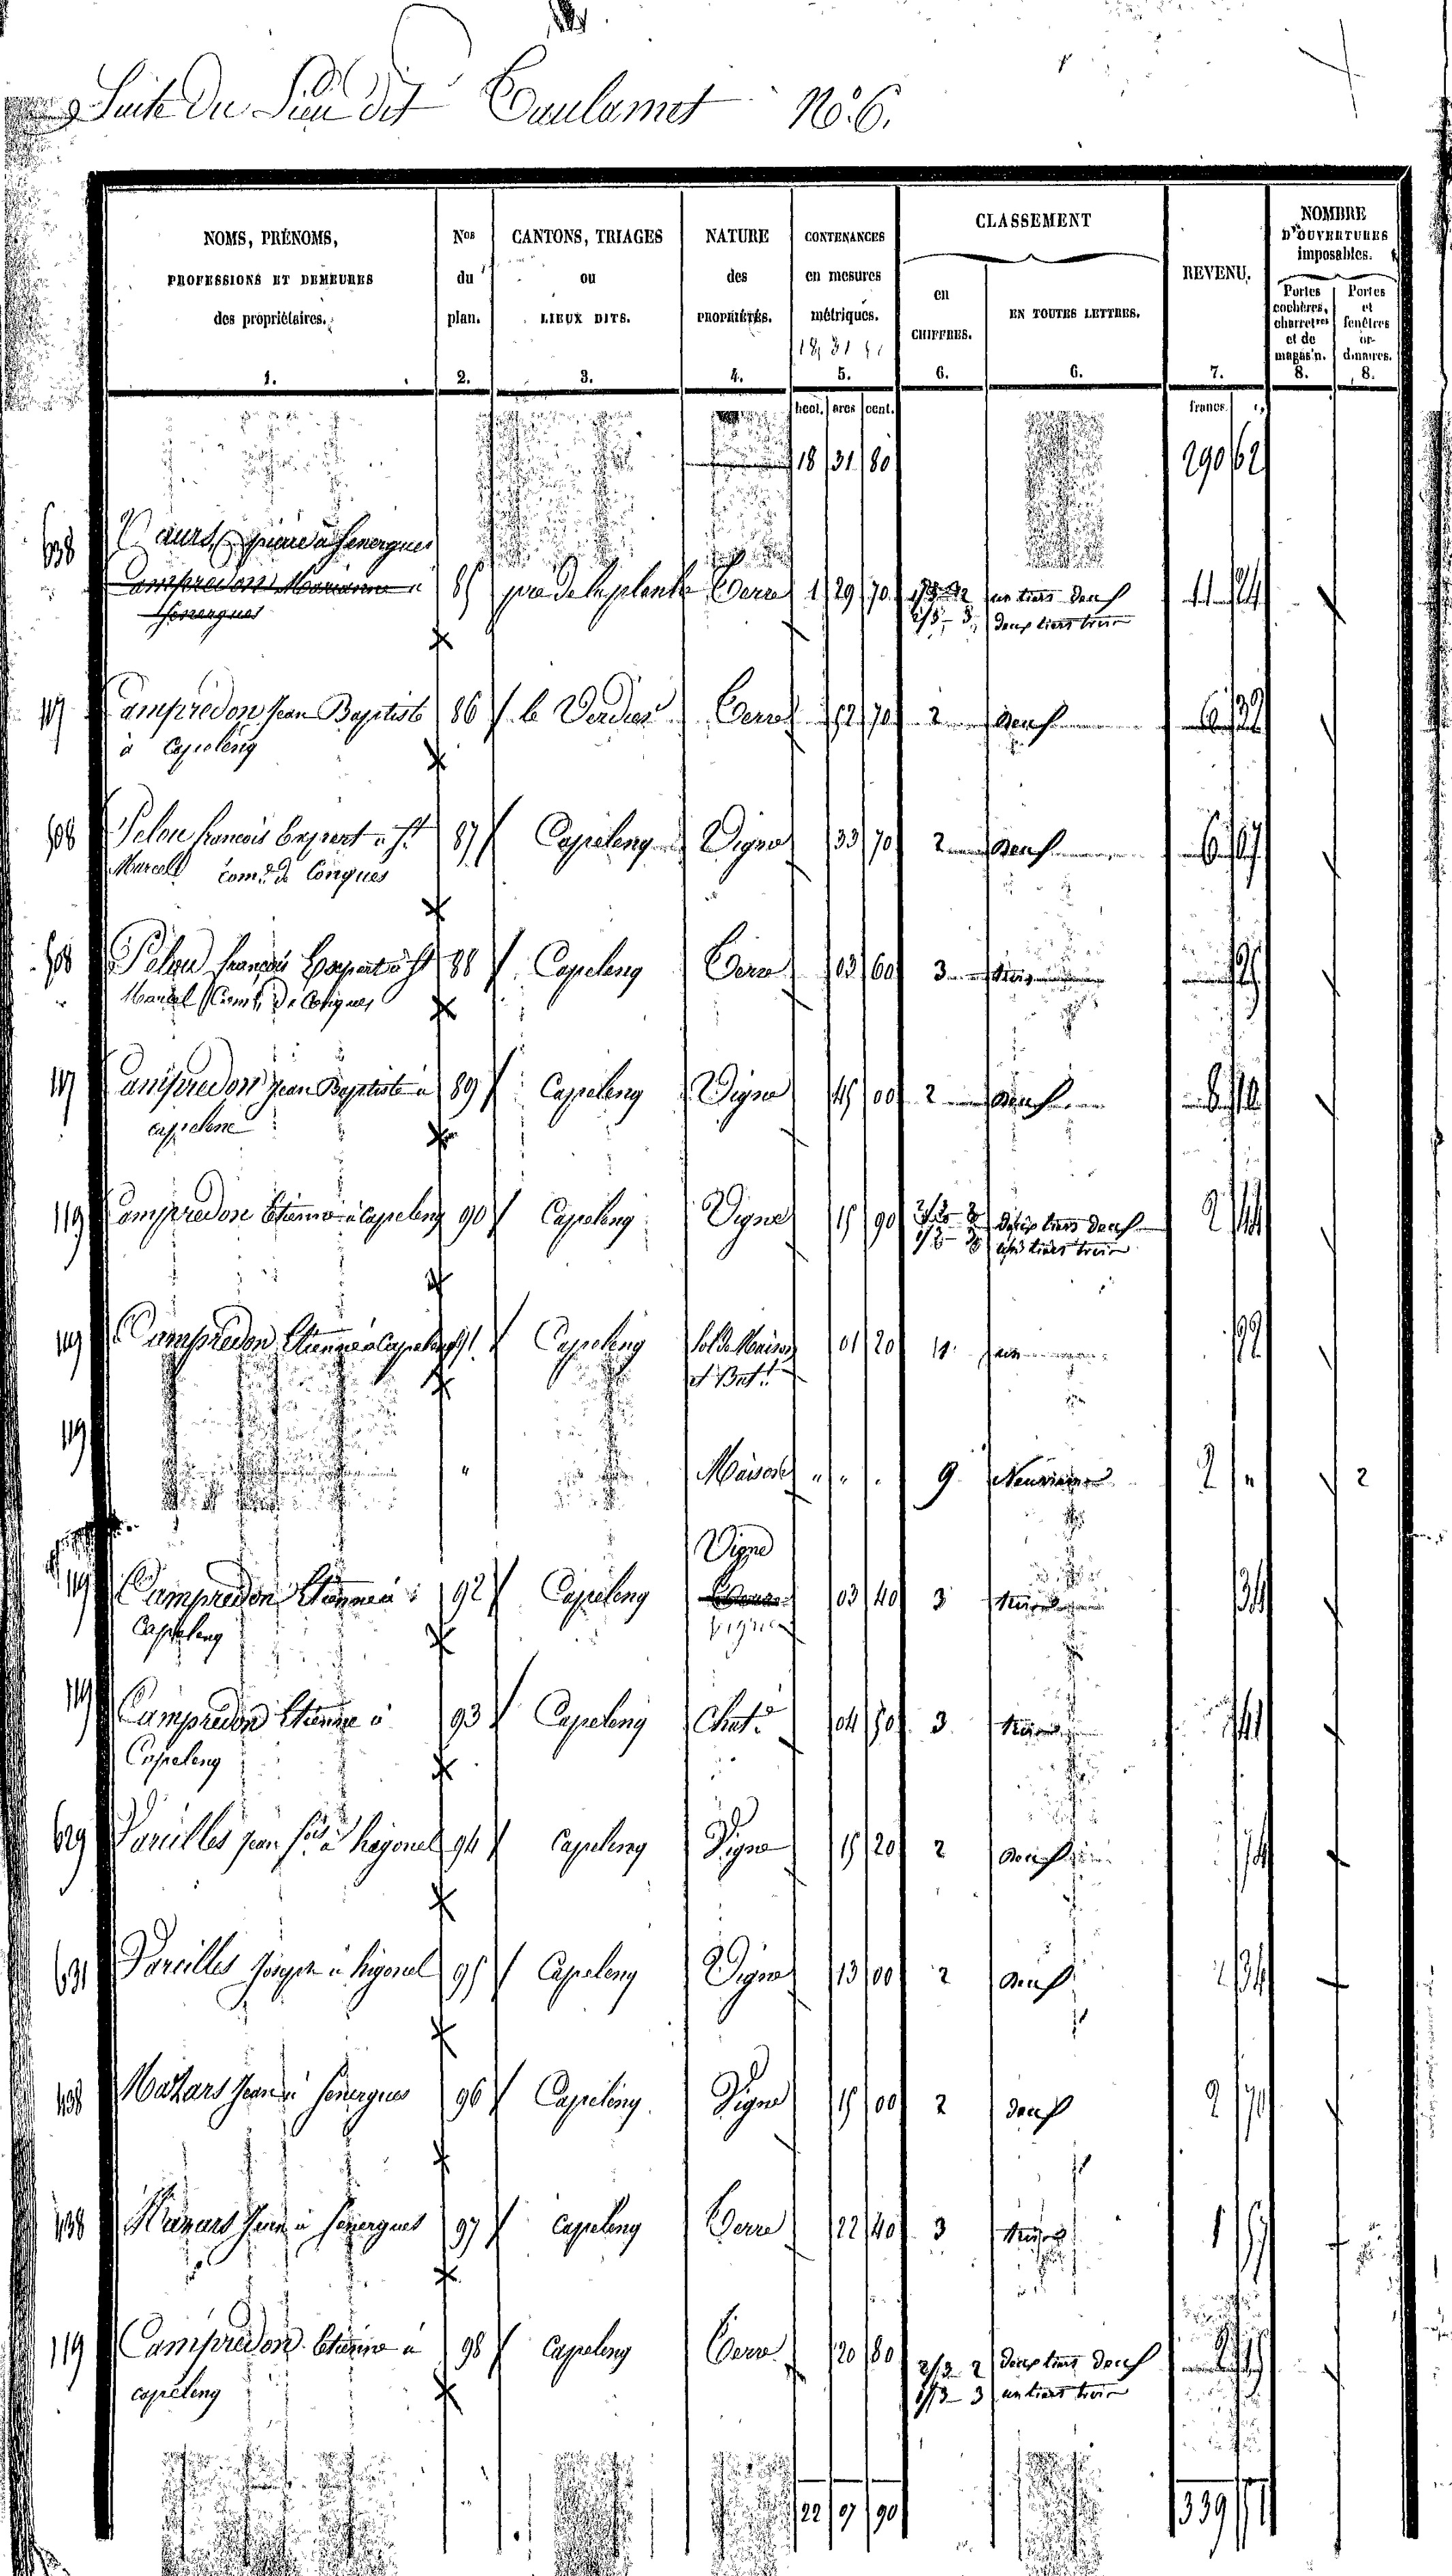 Suite du Lieu dit Caulamet No. 6.
NOMS, PRÉNOMS, PROFESSIONS ET DEMEURES des propriétaires. 1.
Nos du plan. 2.
CANTONS, TRIAGES ou LIEUX DITS. 3.
NATURE des PROPRIÉTÉS. 4.
CONTENANCES en mesures métriques. 5.
CLASSEMENT
en CHIFFRES. 6.
EN TOUTES LETTRES. 6.
REVENU. 7.
NOMBRE D'OUVERTURES imposables.
Portes cochères, charretres et de magas'n. 8.
Portes et fenêtres or- dinaires. 8.
hect. ares cent. francs
18 31 80 290 62
638 à Senergues
Campredon Marianne à 85 Terre 1 29 70 1/3 2 un tiers deux 11 24
Senergues 2/3 3 deux tiers trois
117 Campredon Jean Baptiste 86 le Verdier Terre 52 70 2 deux 6 32
à Capeleng
508 Pelou francois à St 87 Capeleng Vigne 33 70 2 deux 6 07
Marcel com.e de Conques
508 Pelou francois à St 88 Capeleng Terre 03 60 3 trois 25
Marcel Com.e de Conques
117 Campredon Jean Baptiste à 89 Capeleng Vigne 45 00 2 deux 8 10
capelene
119 Campredon Etienne à Capeleng 90 Capeleng Vigne 15 90 2/3 2 deux tiers deux 2 44
1/3 3 un tiers trois
119 Campredon Etienne à Capeleng 91 Capeleng Sol de Maison 01 20 1
et Bat.t
119 " Maison " " . 9 Neuvième 2 " 2
Vigne
119 Campredon Etienne à 92 Capeleng 03 40 3 trois 34
Capeleng vigne
119 Campredon Etienne à 93 Capeleng Chat. 04 50 3 trois
Capeleng
629 Vareilles jean à higonel 94 Capeleng Vigne 15 20 2 deux 2 74
631 Vareilles Joseph à higonel 95 Capeleng Vigne 13 00 2 deux 2 34
438 Mazars Jean à Senergues 96 Capeleng Vigne 15 00 2 deux 2 70
438 Mazars Jean à Senergues 97 Capeleng Terre 22 40 3 trois 1 57
119 Campredon Etienne à 98 Capeleng Terre 20 80 2/3 2 deux tiers deux
capeleng 1/3 3 un tiers trois
22 07 90 339 51